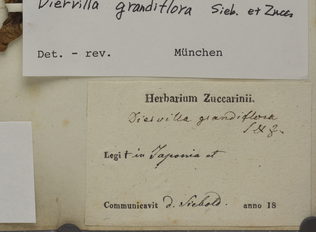 Diervilla grandiflora Sieb. et Zucc
Det. - rev. München
Herbarium Zuccarinii.
Diervilla grandiflora
S & Z.
Legit in Japonia et
Communicavit d. Siebold. anno 18